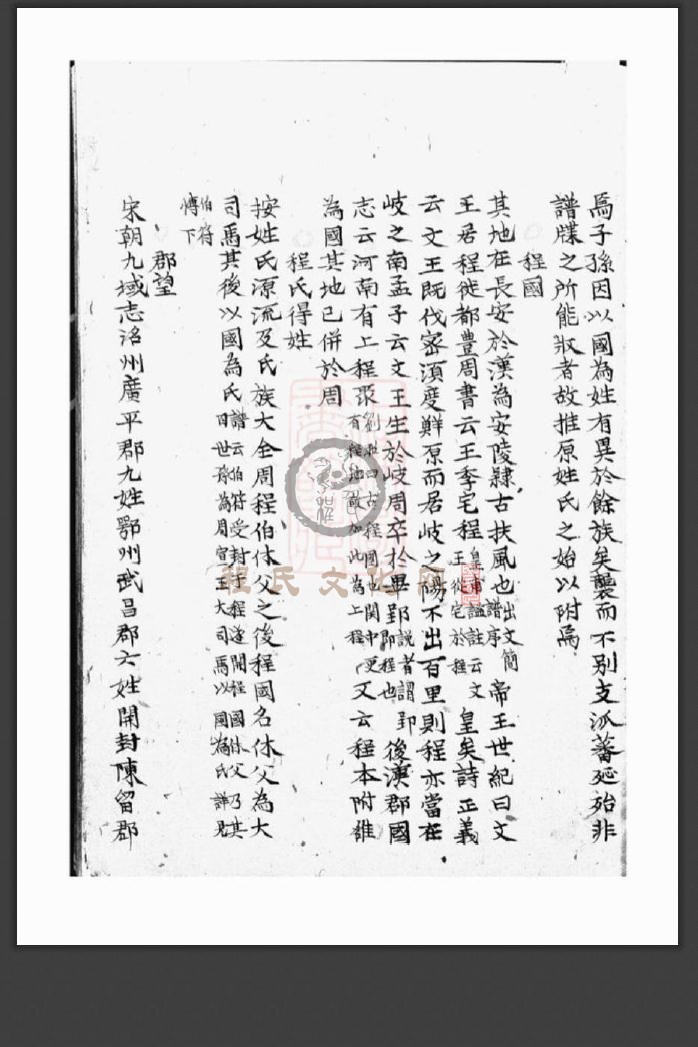 焉子孫因以國為姓有異於餘族矣襲而不别支派蕃延殆非
譜牒之所能㪺者故推原姓氏之始以附焉
程國
其地在長安於漢為安陵隸古扶風也出文簡譜序帝王世紀曰文
王居程徙都豊周書云王季宅程皇甫謐註云文王從宅於程皇矣詩正義
云文王既伐密須度鮮原而居岐之陽不出百里則程亦當在
岐之南孟子云文王生於岐周卒於畢郢説者謂郢即程也後漢郡國
志云河南有上程聚劉昭曰古程國也関中更有程地故加此為上程又云程本附雒
為國其地已併於周
程氏得姓
按姓氏源流及氏族大全周程伯休父之後程國名休父為大
司馬其後以國為氏譜云伯符受封于程遂開程國休父乃其世孫為周宣王大司馬以國為氏詳見
伯符傳下
郡望
宋朝九域志洺州廣平郡九姓鄂州武昌郡六姓開封陳留郡
程氏文化网